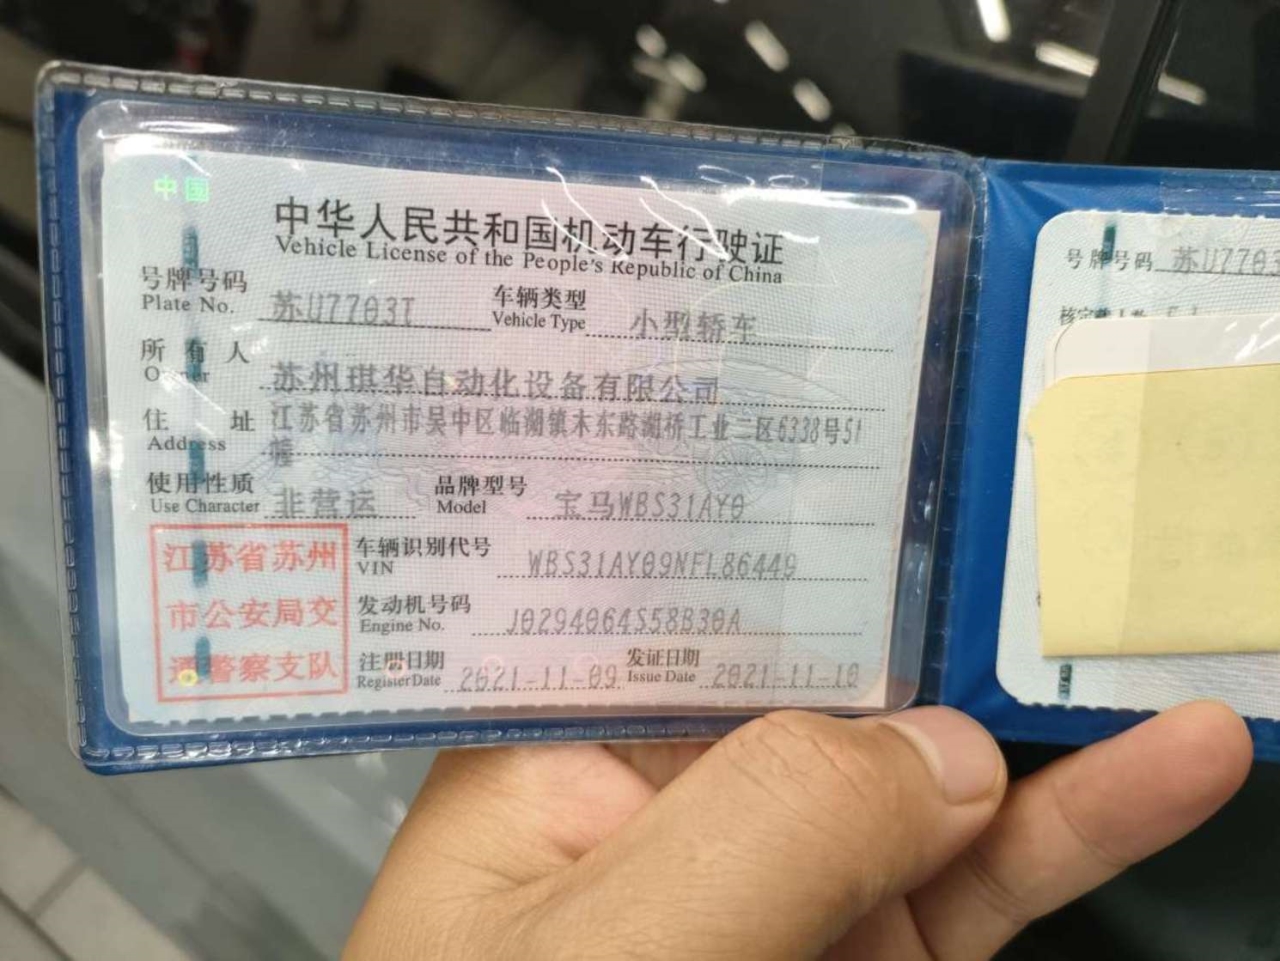 中国
中华人民共和国机动车行驶证
Vehicle License of the People's Republic of China
号牌号码 苏U7703T 车辆类型 小型轿车
Plate No. Vehicle Type
所有人 苏州琪华自动化设备有限公司
Owner
住址 江苏省苏州市吴中区临湖镇木东路湖桥工业二区6338号51
Address 幢
使用性质 非营运 品牌型号 宝马WBS31AY0
Use Character Model
江苏省苏州
市公安局交
通警察支队
车辆识别代号 WBS31AY09NFL86449
VIN
发动机号码 J0294064S58B30A
Engine No.
注册日期 2021-11-09 发证日期 2021-11-10
Register Date Issue Date
号牌号码 苏U7703